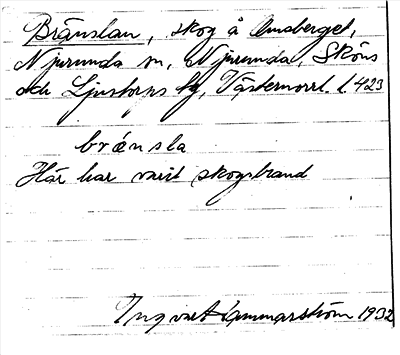 Brånslan, skog å Armsberget,
Njurunda sn, Njurunda, Sköns
och Ljustorps tg, Västernorrl. l. 423
brånsla
Här har varit skogsbrand
Ingvart Hammarström 1932